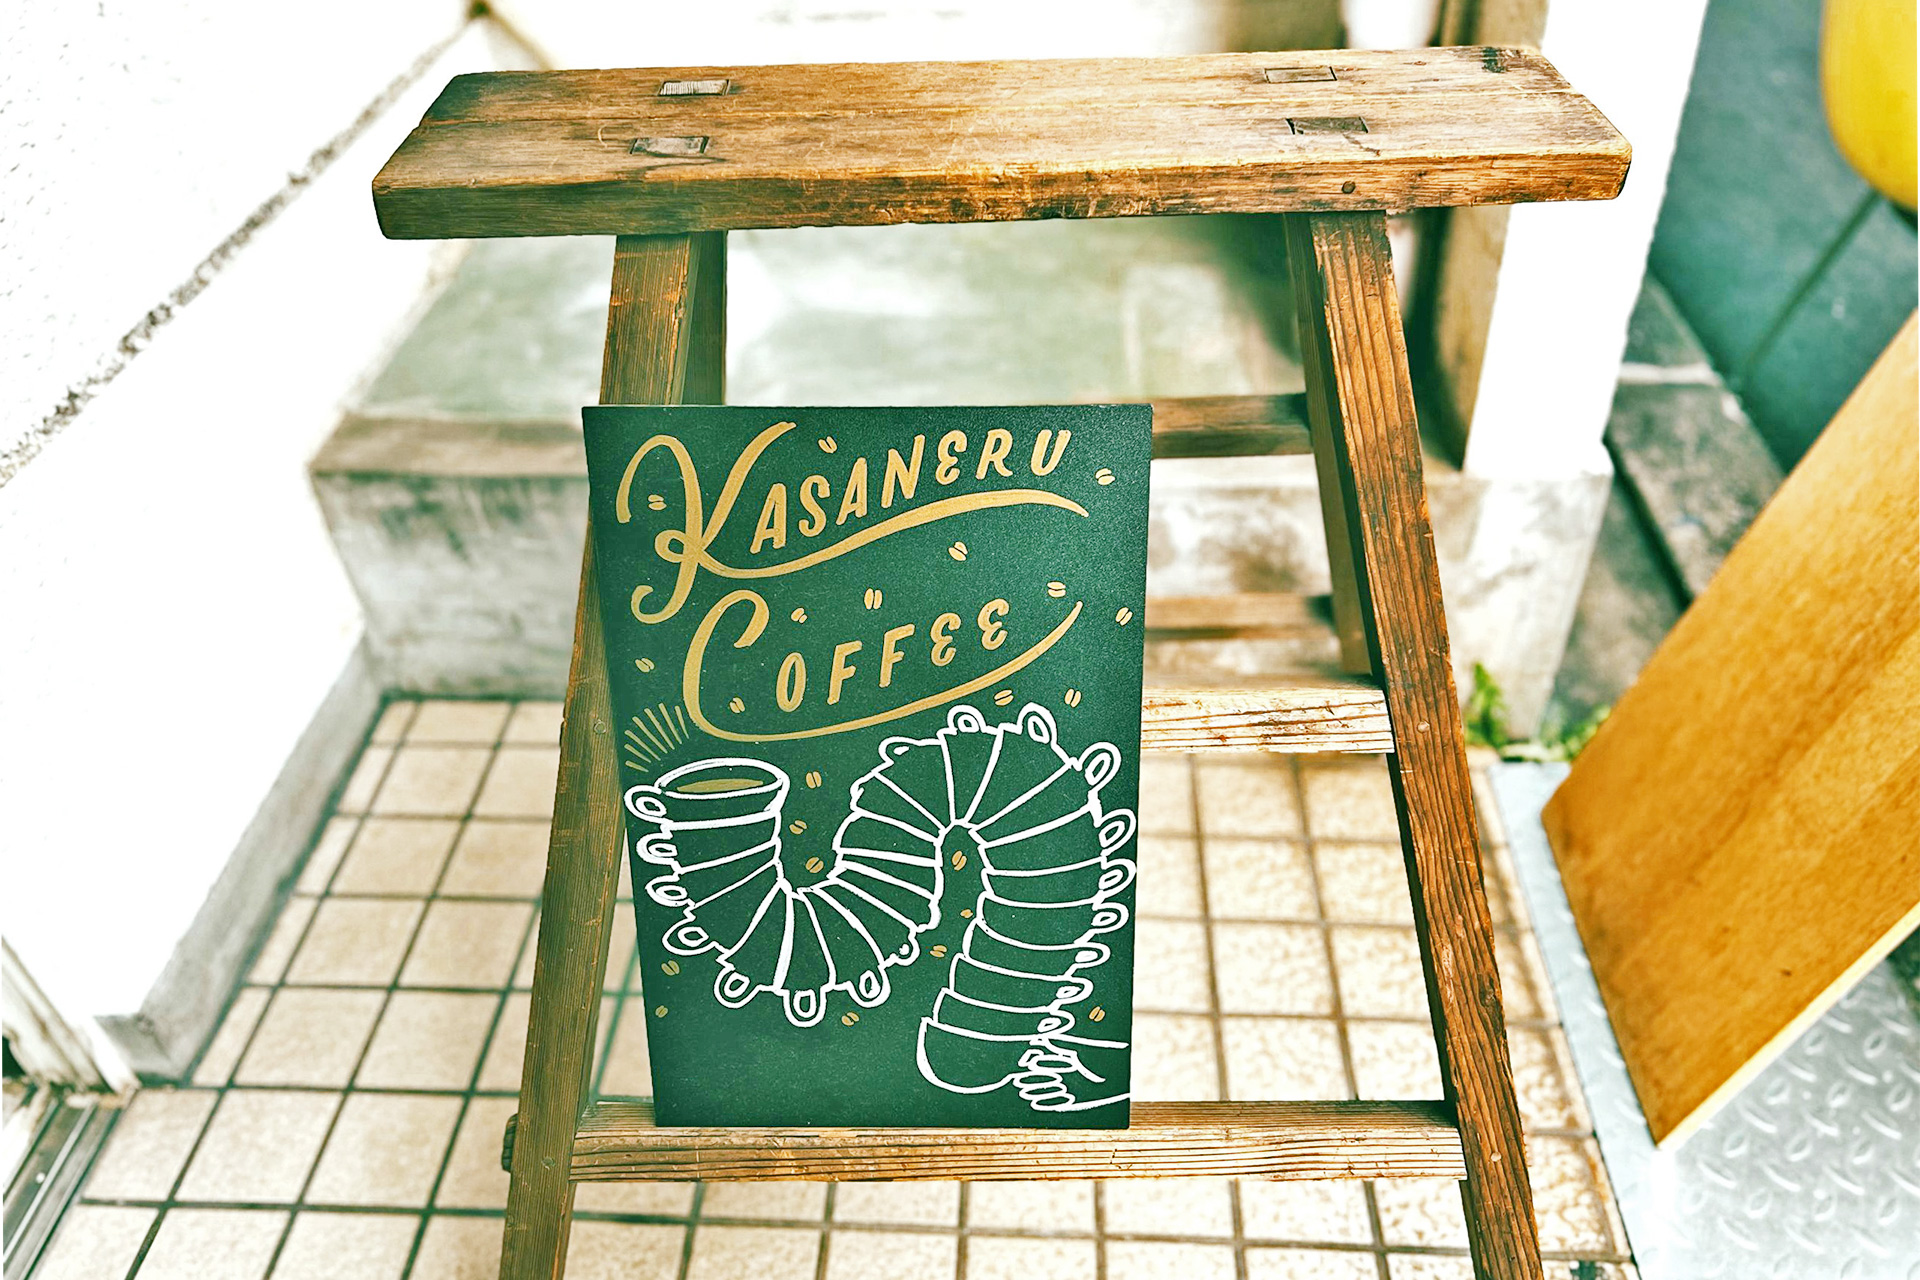 KASANERU
COFFEE